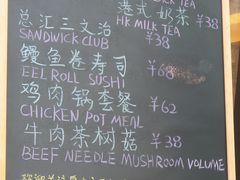 MILK TEA
港式奶茶 ¥38
HK MILK TEA
总汇三文治 ¥38
SANDWICK CLUB
鳗鱼卷寿司 ¥68
EEL ROLL SUSHI
鸡肉锅套餐 ¥62
CHICKEN POT MEAL
牛肉茶树菇 ¥38
BEEF NEEDLE MUSHROOM VOLUME